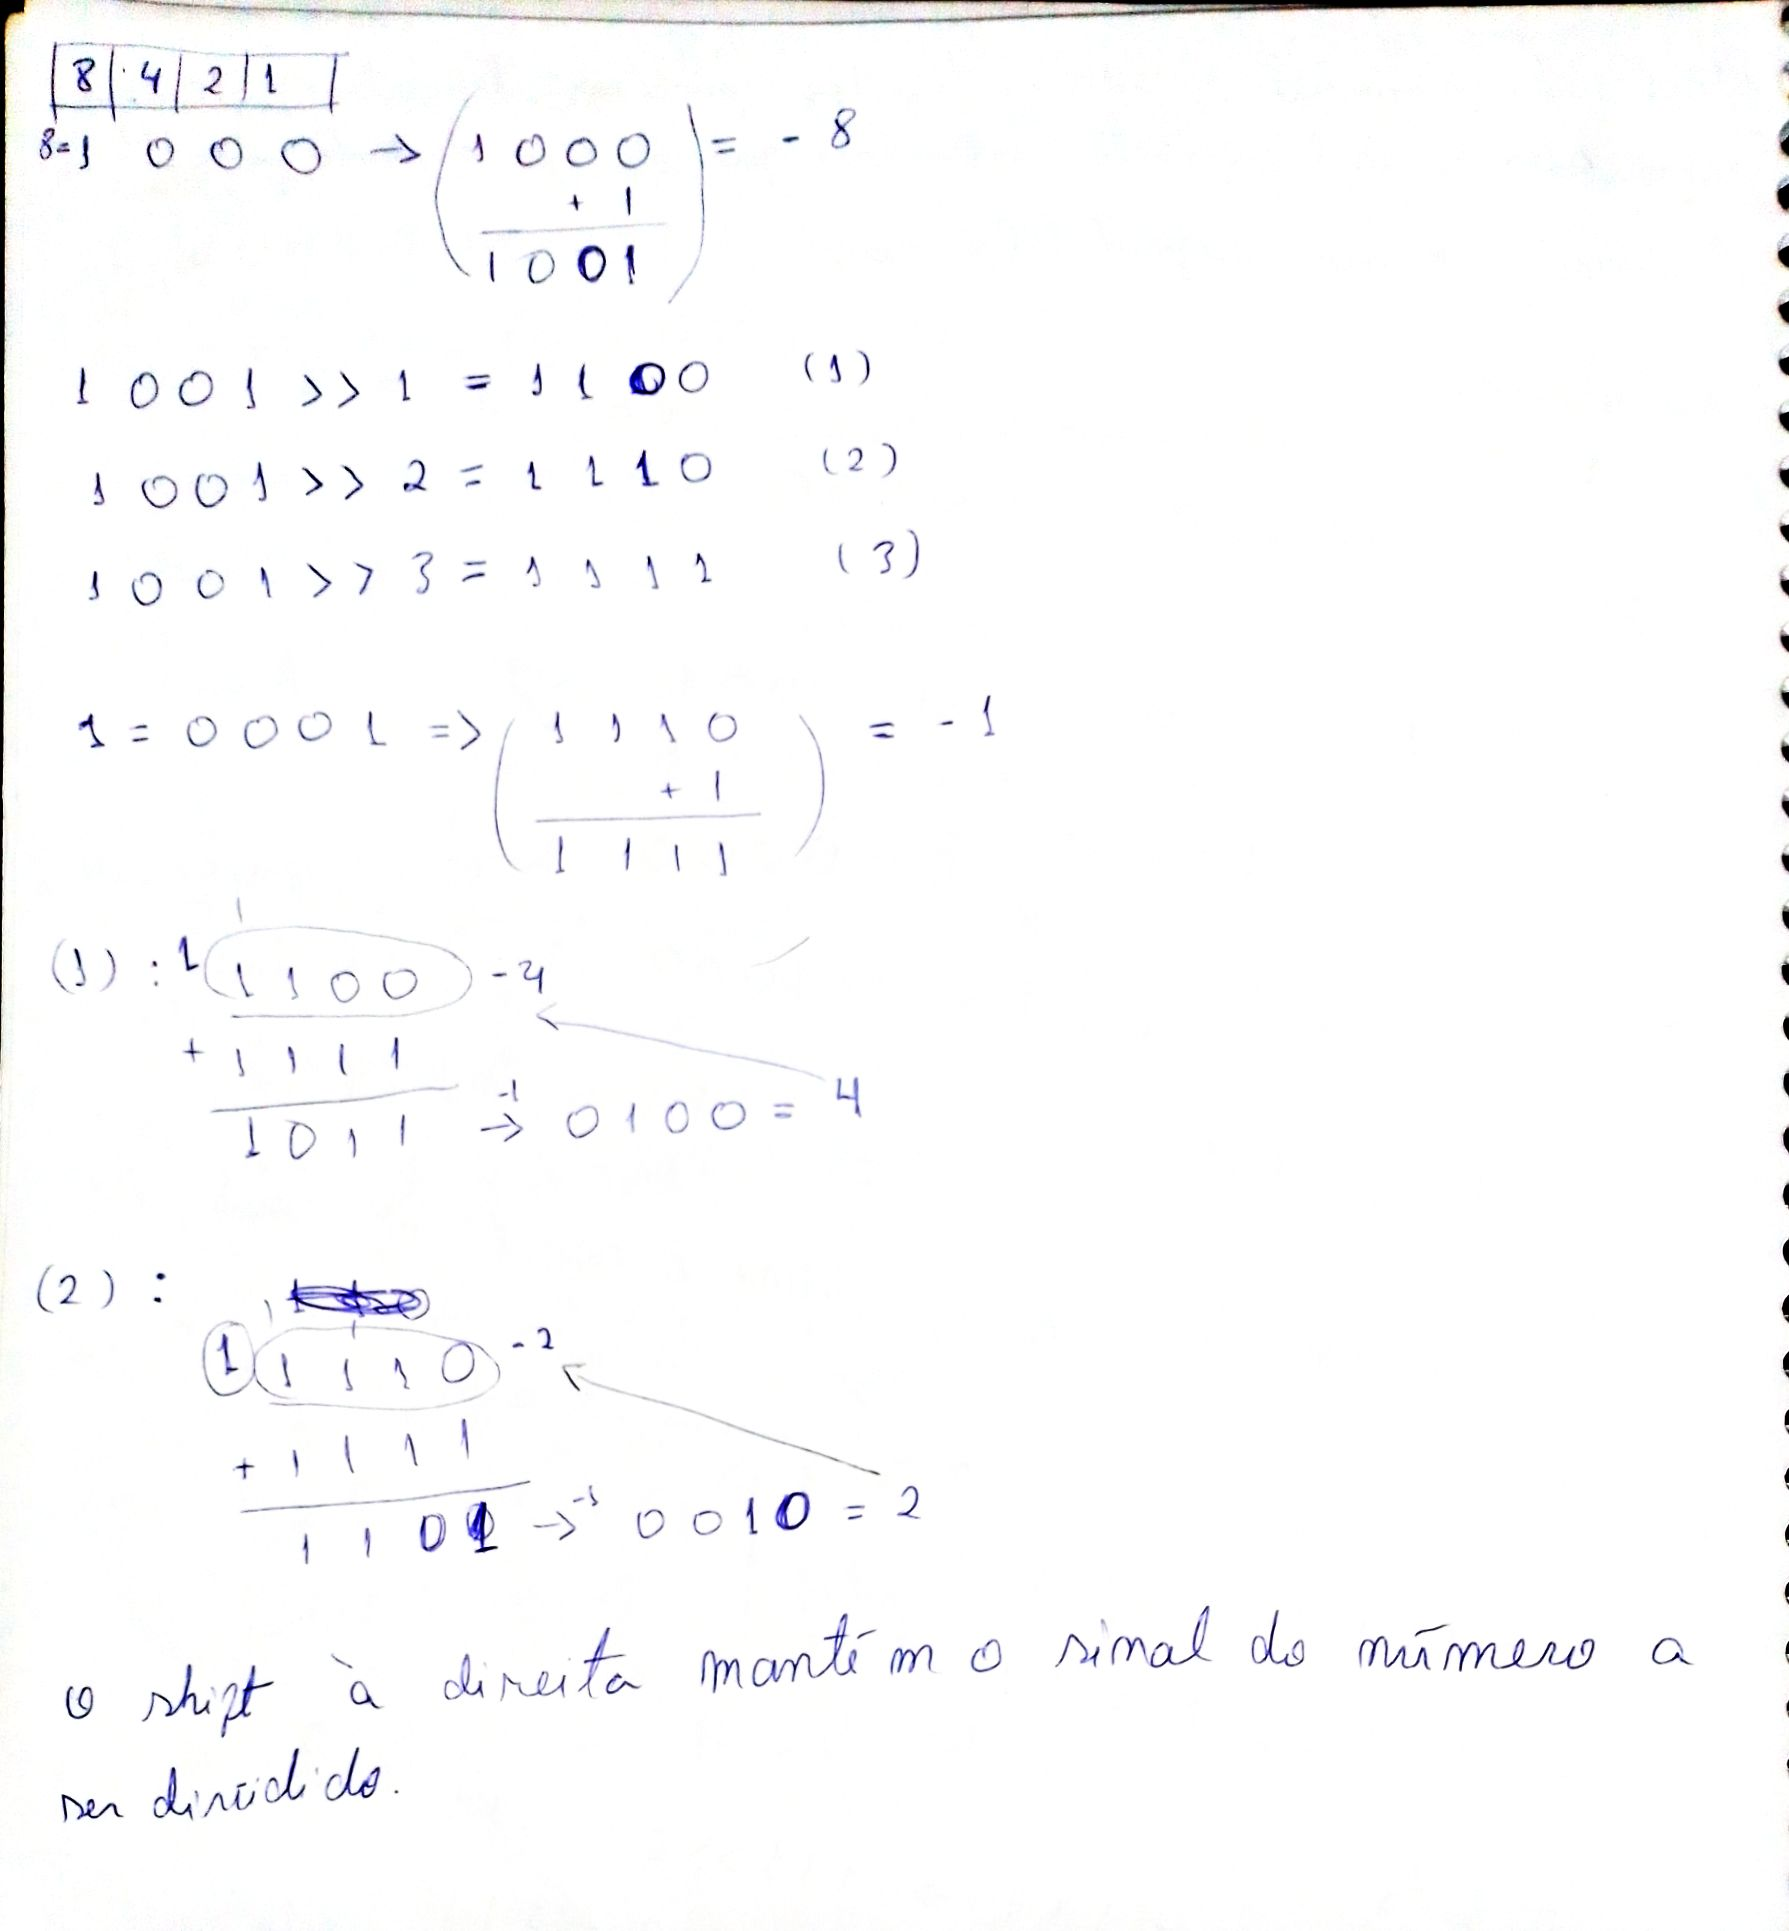 8 4 2 1
8=1 0 0 0 → (1 0 0 0 = -8
+ 1
1 0 0 1)
1 0 0 1 >> 1 = 1 1 0 0 (1)
1 0 0 1 >> 2 = 1 1 1 0 (2)
1 0 0 1 >> 3 = 1 1 1 1 (3)
1 = 0 0 0 1 => (1 1 1 0 ) = -1
+ 1
1 1 1 1
1
(1) : 1 1 1 0 0 -4
+ 1 1 1 1
1 0 1 1 → -1 0 1 0 0 = 4
(2) :
1 1
1 1 1 1 0 -2
+ 1 1 1 1
1 1 0 1 → -1 0 0 1 0 = 2
o shift à direita mantém o sinal do número a
ser dividido.